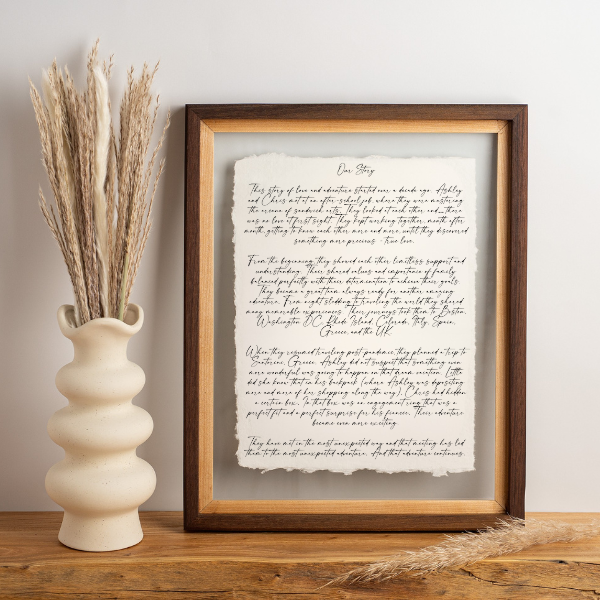 Our Story
This story of love and adventure started over a decade ago. Ashley
and Chris met at an after-school job, where they were mastering
the arcana of sandwich arts. They looked at each other and...there
was no love at first sight. They kept working together, month after
month, getting to know each other more and more, until they discovered
something more precious - true love.
From the beginning, they showed each other limitless support and
understanding. Their shared values and importance of family
balanced perfectly with their determination to achieve their goals.
They became a great team, always ready for another amazing
adventure. From night sledding to traveling the world they shared
many memorable experiences. Their journeys took them to Boston,
Washington DC, Rhode Island, Colorado, Italy, Spain,
Greece, and the UK.
When they resumed traveling post-pandemic, they planned a trip to
Santorini, Greece. Ashley did not suspect that something even
more wonderful was going to happen on that dream vacation. Little
did she know that in his backpack (where Ashley was depositing
more and more of her shopping along the way), Chris had hidden
a certain box. In that box was an engagement ring that was a
perfect fit and a perfect surprise for his fiancee. Their adventure
became even more exciting.
They have met in the most unexpected way and that meeting has led
them to the most unexpected adventure. And that adventure continues.